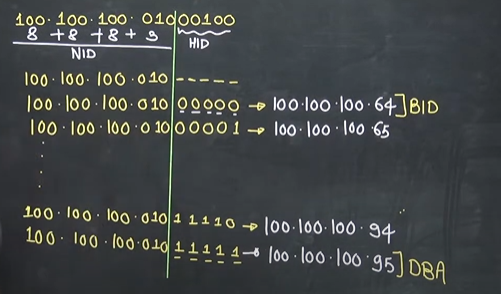 100.100.100.01000100
8 + 8 + 8 + 3
NID HID
100.100.100.010-----
100.100.100.01000000 → 100.100.100.64] BID
100.100.100.01000001 → 100.100.100.65
100.100.100.01011110 → 100.100.100.94
100.100.100.01011111 → 100.100.100.95] DBA